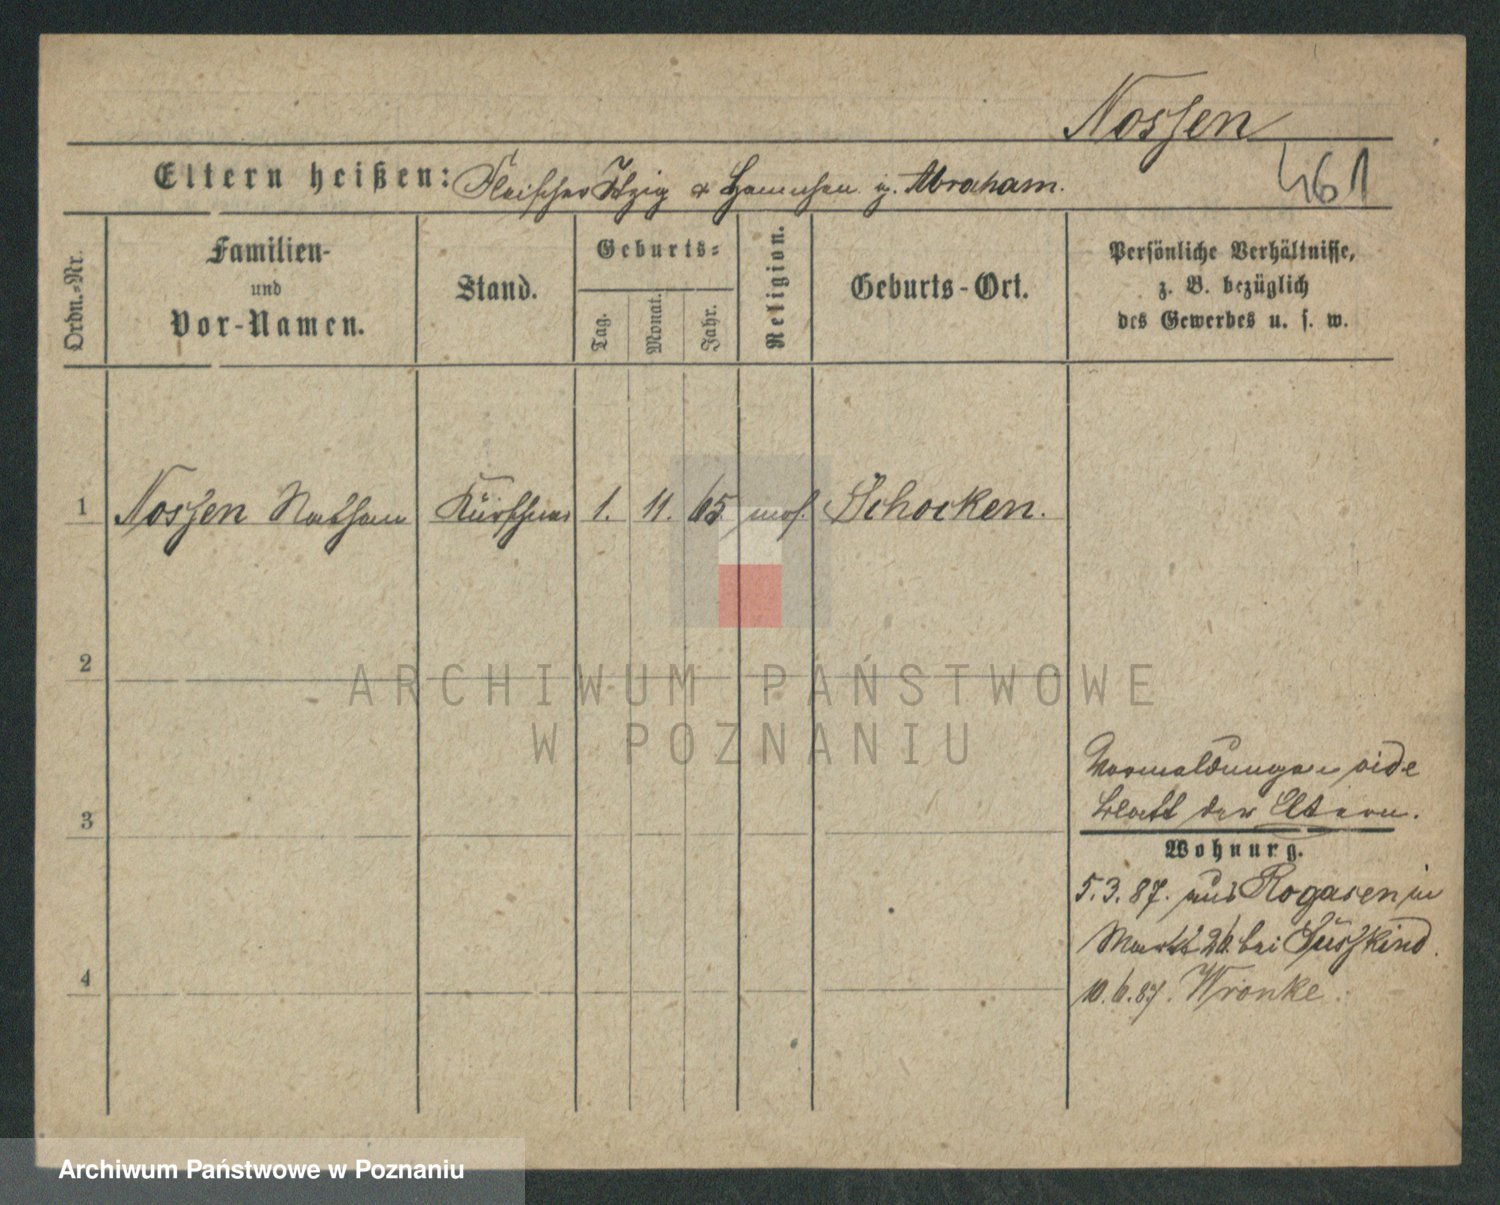 Nossen
461
Eltern heißen: Fleischer Itzig & Hannchen g. Abraham.
Ordn.-Nr.
Familien-
und
Vor-Namen.
Stand.
Geburts-
Tag.
Monat.
Jahr.
Religion.
Geburts-Ort.
Persönliche Verhältnisse,
z. B. bezüglich
des Gewerbes u. s. w.
1 Nossen Nathan Kürschner 1. 11. 65. mos. Schocken.
2
ARCHIWUM PAŃSTWOWE
W POZNANIU
Vormeldungen vide
3 Blatt der Eltern.
Wohnung.
5.3.87. aus Rogasen in
Markt 26. bei Süsskind.
4 10.6.87. Wronke.
Archiwum Państwowe w Poznaniu